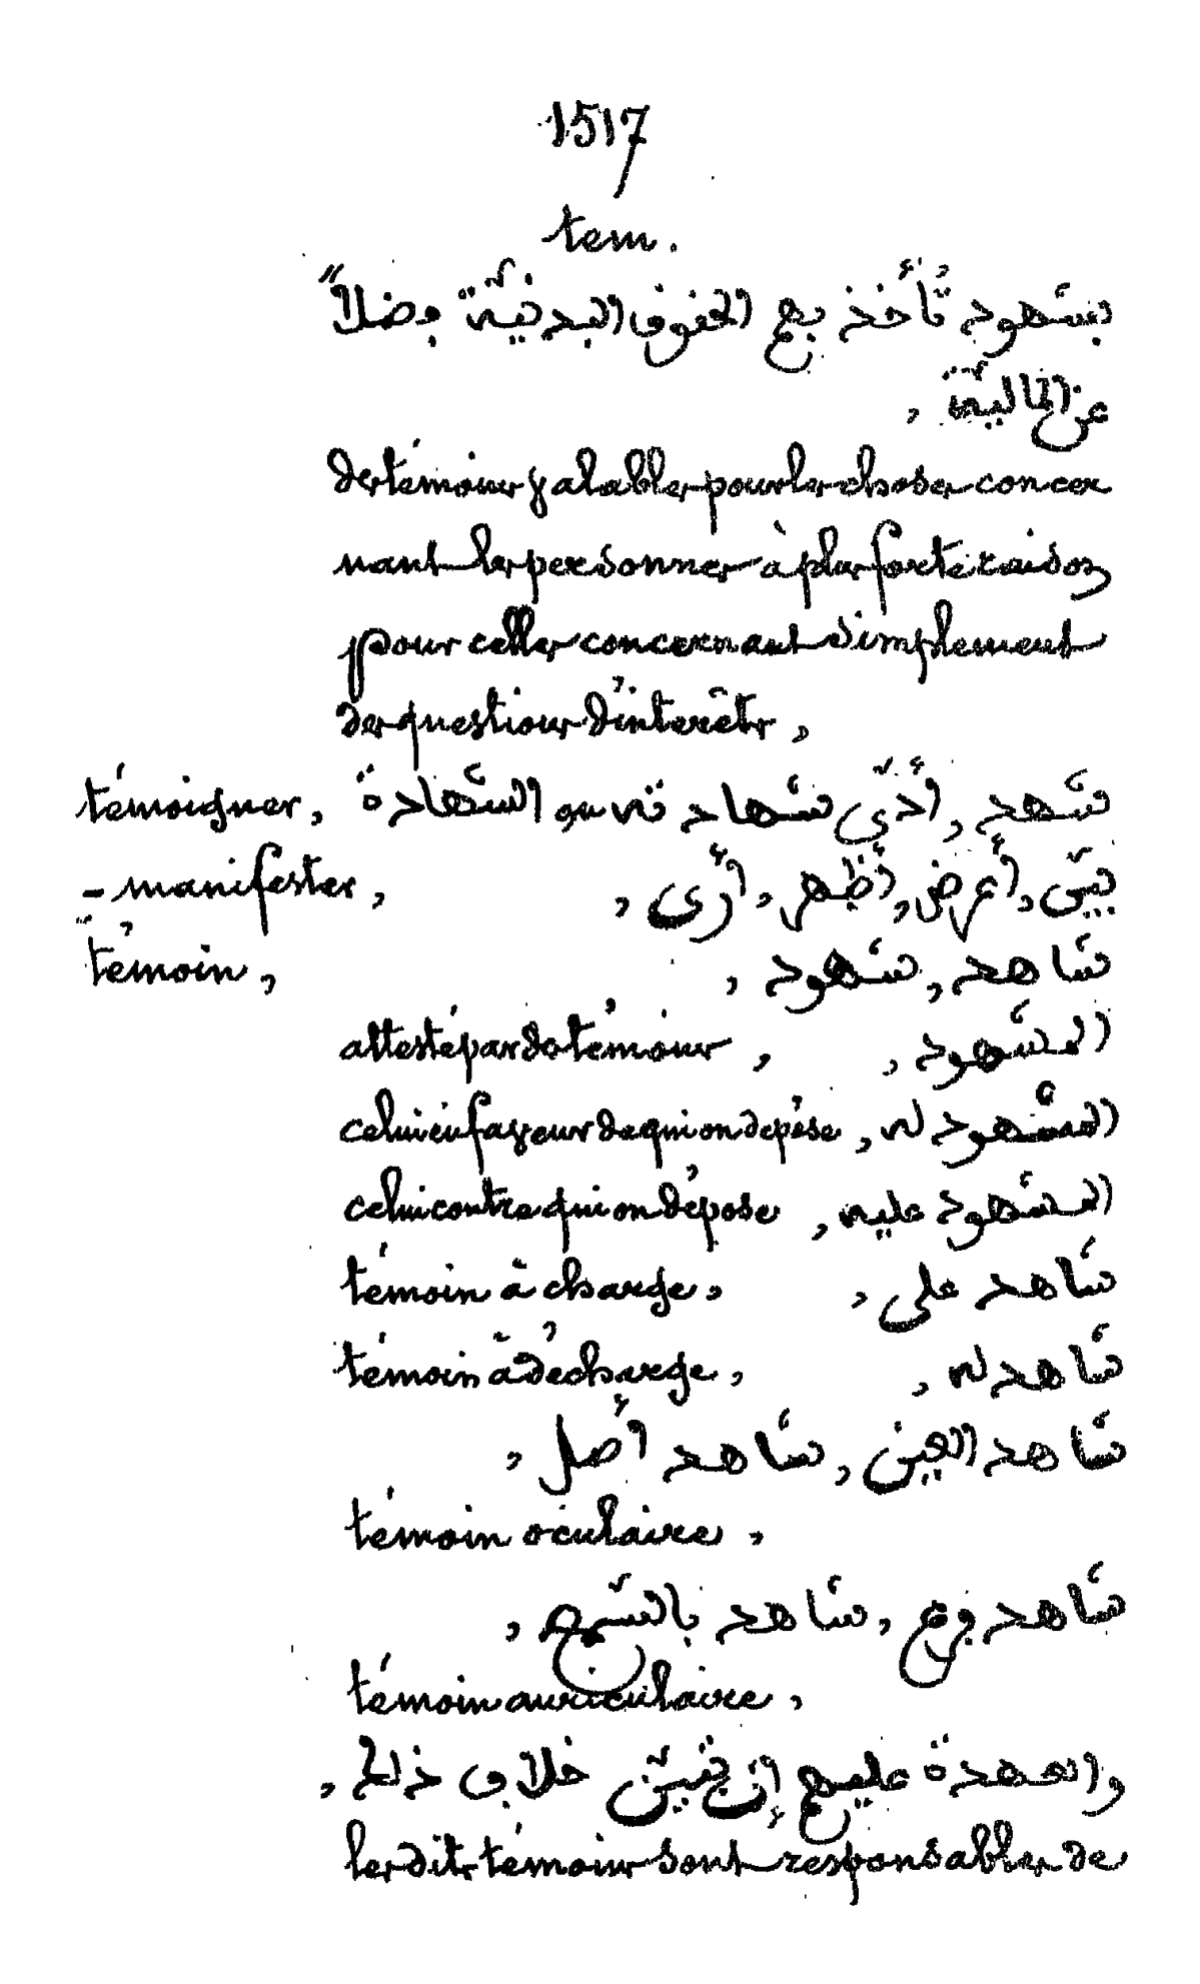 1517
tem.
بشهود تُأخذ بهم الحقوق البدنيّة فضلاً
عن الماليّة ,
des témoins valables pour les choses concer
nant les personnes à plus forte raison
pour celles concernant simplement
des questions d'intérêts,
témoigner, شهد , أدّى شهادته او الشهادة
- manifester, بيّن , أعرض , أظهر , أرى ,
témoin, شاهد , شهود ,
attesté par de témoins, المشهود ,
celui en faveur de qui on dépose, المشهود له
celui contre qui on dépose, المشهود عليه
témoin à charge, شاهد على ,
témoin à décharge, شاهد له ,
شاهد العين , شاهد أصل ,
témoin oculaire,
شاهد فرع , شاهد بالسّمع ,
témoin auriculaire,
والعهدة عليهم إن تبيّن خلاف ذلك ,
les dits témoins sont responsables de